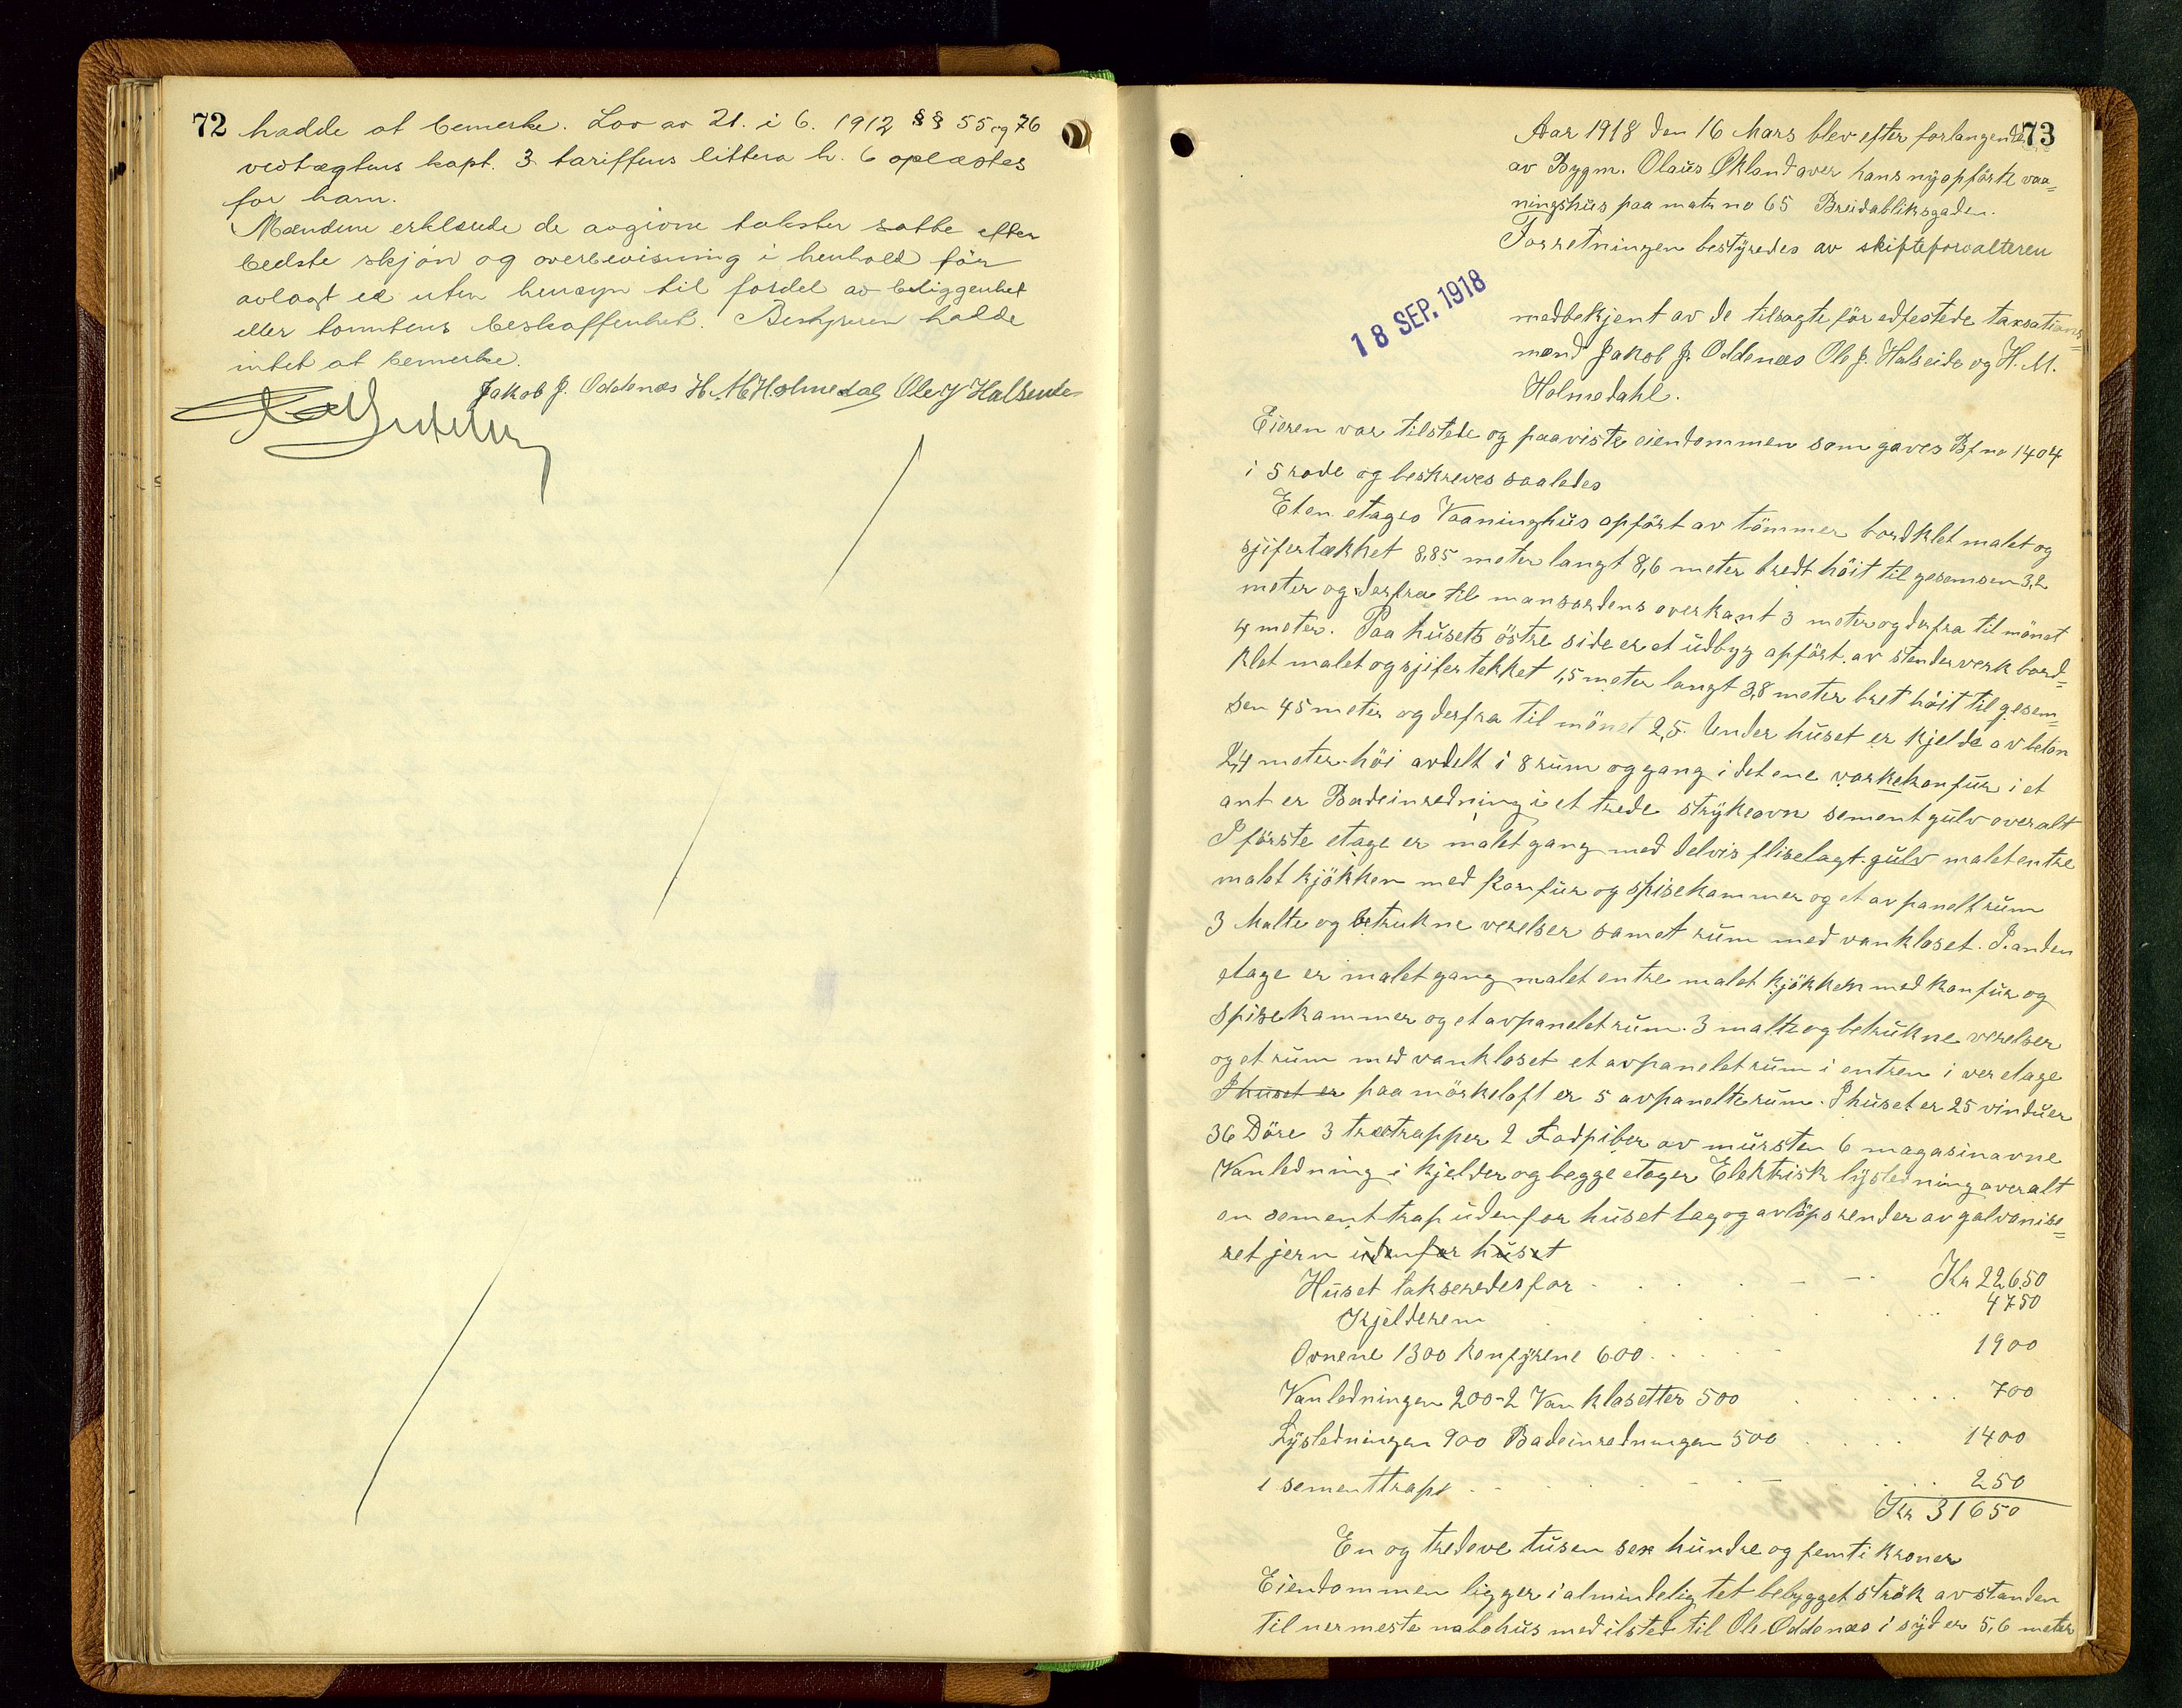 72 hadde at bemerke. Lov av 21. i 6. 1912 §§ 55 og 76
vedtægtens kapt. 3 tariffens littera h. 6 oplæstes
for ham.
Mændene erklærede de avgivne takster satte efter
bedste skjøn og overbevisning i henhold för
avlagt ed uten hensyn til fordel av beliggenhet
eller tomtens beskaffenhet. Bestyreren hadde
intet at bemerke.
Jakob J. Oddenæs H. M. Holmedal Ole J Halseide
73
Aar 1918 den 16 Mars blev efter forlangende
av Bygm. Olaus Økland over hans nyopförte vaa=
ningshus paa matr no 65 Breidabliksgaden.
Forretningen bestyredes av skifteforvalteren
18 SEP. 1918
medbekjent av de tilsagte för edfestede taxations=
mænd Jakob J. Oddenæs Ole J. Halseide og H. M.
Holmedahl.
Eieren var tilstede og paaviste eiendommen som gaves Bf no 1404
i 5 rode og beskreves saaledes
Et en etages Vaaninghus opfört av tömmer bordklet malet og
sjifertækket 8,85 meter langt 8,6 meter bredt höit til gesemsen 3,2
meter og derfra til mansardens overkant 3 meter og derfra til mönet
4 meter. Paa husets östre side er et udbyg opfört av stenderverk bord=
klet malet og sjifertekket 1,5 meter langt 3,8 meter bret höit til gesem=
sen 45 meter og derfra til mönet 2,5. Under huset er kjelde av beton
2,4 meter höi avdelt i 8 rum og gang i det ene vaskekonfur i et
ant er Badeinredning i et trede strykeovn sement gulv overalt
I förste etage er malet gang med delvis fliselagt gulv malet entre
malet kjökken med konfur og spisekammer og et avpanelt rum
3 Malte og betrukne verelser samet rum med vankloset. I anden
etage er malet gang malet entre malet kjökken med konfur og
spisekammer og et avpanelet rum. 3 malte og betrukne verelser
og et rum med vankloset et avpanelet rum i entren i ver etage
I huset er paa mörkeloft er 5 avpanelte rum. I huset er 25 vinduer
36 Döre 3 trætrapper 2 Fadpiber av mursten 6 magasinovne
Vanledning i kjelder og begge etager Elektrisk lysledning overalt
en sement trap udenfor huset tag og avlöpsrender av galvanise=
ret jern udenfor huset
Huset takseredes for Kr 22650
Kjelderem 4750
Ovnene 1300 konfyrene 600 1900
Vanledningen 200 - 2 Van klosetter 500 700
Lysledningen 900 Badeinredningen 500 1400
1 sementtrape 250
Kr 31650
En og tredeve tusen sex hundre og femti kroner
Eiendommen ligger i almindelig tet bebygget strök avstanden
til nermeste nabohus med ilsted til Ole Oddenæs i syd er 5,6 meter